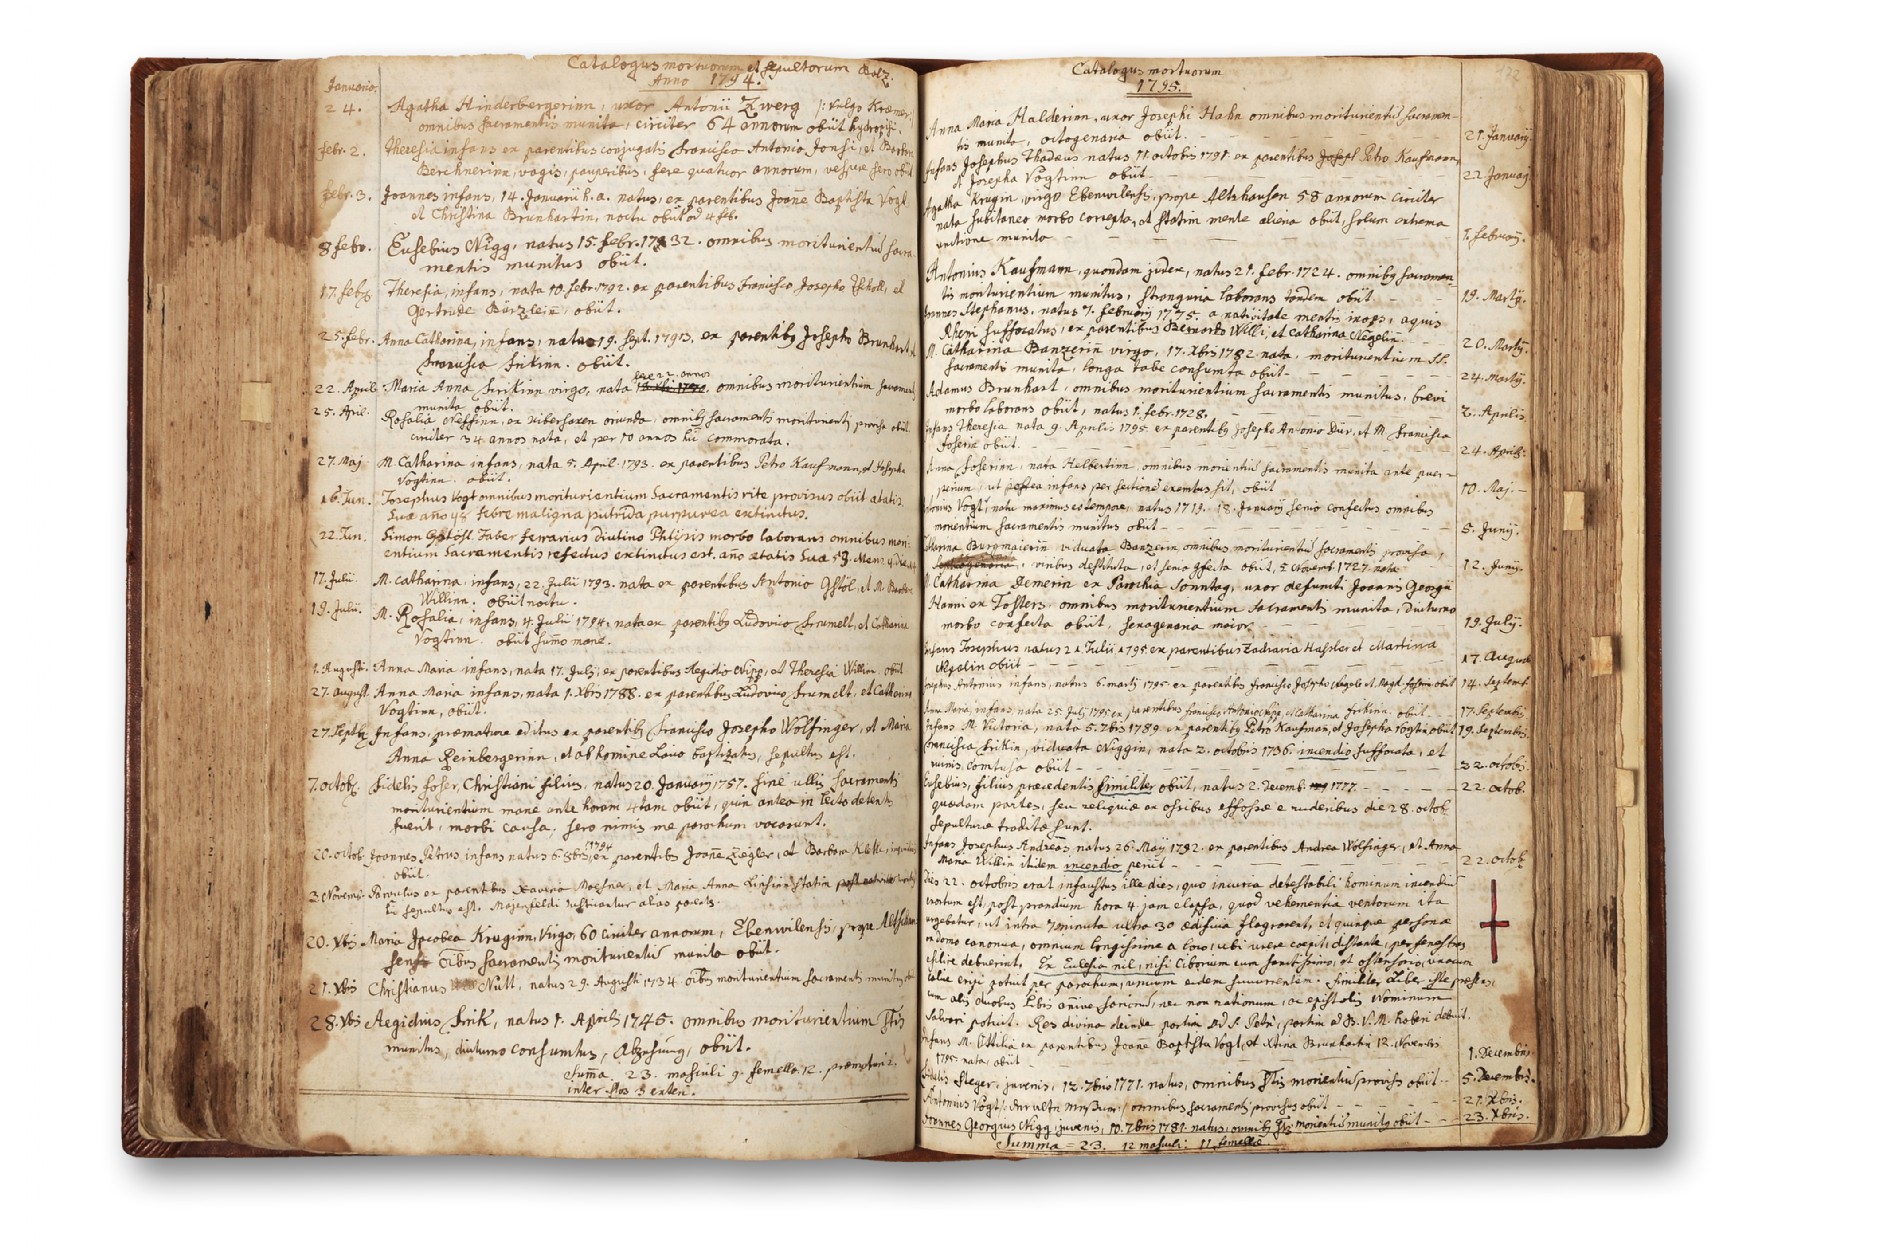 Catalogus mortuorum et sepultorum
Anno 1794.
Januario.
24. Agatha Hinderbergerinn, uxor Antonii Zwerg vulgo
omnibus Sacramentis munita, circiter 64 annorum obiit hydropisi.
Febr. 2. Theresia infans ex parentibus conjugatis Francisco Antonio et
vagis, pauperibus, fere quatuor annorum, vespere sero obiit
Febr. 3. Joannes infans, 14. Januarii h. a. natus, ex parentibus Joanne Baptista Vogt
et Christina Brunhartin, noctu obiit
8 febr. Eusebius Nigg, natus 15. Febr. 1732. omnibus morientium Sacra-
mentis munitus obiit.
17. febr. Theresia, infans, nata 10. febr. 1792. ex parentibus Francisco Josepho et
Gertrude obiit.
25. febr. Anna Catharina, infans, nata 19. Sept. 1793. ex parentibus Josepho Brunhart et
Francisca Frikinn. obiit.
fere 22. annos
22. April Maria Anna Frikinn virgo, nata omnibus moriturientium
munita obiit.
25. April. Rosalia oriunda, omnibus sacramentis morituriential
circiter 34 annos nata, et per 10 annos hic commorata.
27. Maj. M. Catharina infans, nata 5. April. 1793. ex parentibus Petro Kaufmann, et Josepha
Vogtinn. obiit.
16. Jun. Josephus Vogt omnibus moriturientium Sacramentis rite provisus obiit ætatis
suæ año febre maligna putrida purpurea extinctus.
22. Jun. Simon Faber ferrarius diutino Phtisis morbo laborans omnibus mori-
entium Sacramentis refectus extinctus est. año ætatis Suæ
17. Julii. M. Catharina, infans, 22. Julii 1793. nata ex parentibus Antonio Gstöl, et M.
Willinn. obiit noctu.
18. Julii. M. Rosalia, infans, 4. Julii 1794. nata ex parentibus Ludovico Frumelt, et Catharina
Vogtinn. obiit summo mane.
1. Augusti. Anna Maria infans, nata 17. Julij, ex parentibus Aegidio et Theresia Willin. obiit
27. August. Anna Maria infans, nata 1. Xbris 1788. ex parentibus Ludovico Frumelt, et Catharina
Vogtinn, obiit.
27. Septbr. Infans, præmature editus ex parentibus Francisco Josepho Wolfinger, et Maria
Anna Reinbergerinn, et ab homine Laico baptizatus, sepultus est.
7. octob. Fidelis Foser, Christiani filius, natus 20. Januarij 1757. sine ullis Sacramentis
moriturientium mane ante horam 4tam obiit, quin antea in lecto detentus
fuerit, morbi causa. sero nimis me parochum vocarunt.
1794
20. octob. Joannes Petrus, infans natus 6. 8bris, ex parentibus Joanne Ziegler, et Barbara
obiit.
3. Novemb. Parvulus ex parentibus et Maria Anna statim
hic sepultus est.
20. Xbris Maria Jacobea Kruginn, Virgo, 60 circiter annorum, Ebenwilensis, prope
Sacramentis moriturientium munita obiit.
21. Xbris Christianus Nutt, natus 29. Augusti 1734. omnibus moriturientium Sacramentis munitus
28. Xbris Aegidius Frik, natus 1. Aprilis 1745. omnibus moriturientium
munitus, diuturno consumtus, Abzehrung, obiit.
Summa 23. masculi 9. femellæ 12.
inter hos 3 exteri.
Catalogus mortuorum
1795.
172
Anna Maria Halderinn, uxor Josephi Hahn omnibus moriturientium sacramen-
tis munita, octogenaria obiit. 21. Januarij.
Infans Josephus Thadæus natus 11. octobris 1791. ex parentibus Petro Kaufmann,
et Josepha Vogtinn obiit 22. Januarij
Agatha Krugin, virgo Ebenwilensis, prope Altshausen 58 annorum circiter
nata subitaneo morbo correpta, et statim mente aliena obiit, solum extrema
unctione munita 1. februarij.
Antonius Kaufmann, quondam judex, natus 21. febr. 1724. omnibus sacramen-
tis moriturientium munitus, stranguria laborans tandem obiit. 19. Martij.
Joannes Stephanus, natus 7. februarij 1775. a nativitate mentis inops, aquis
Rheni suffocatus, ex parentibus Bernardo Willi, et Catharina Negelin. 20. Martij.
M. Catharina Banzerin virgo, 17. Xbris 1782 nata, moriturientium SS.
Sacramentis munita, longa tabe consumta obiit 24. Martij.
Adamus Brunhart, omnibus moriturientium sacramentis munitus, brevi
morbo laborans obiit, natus 1. febr. 1728. 2. Aprilis
Infans Theresia nata 9. Aprilis 1795 ex parentibus Josepho Antonio et M. Francisca
Foserin obiit. 24. Aprilis.
Foserinn, nata Helbertinn, omnibus morientium sacramentis munita ante puer-
perium, ut postea infans per sectionem exemtus sit, obiit 10. Maj.
Antonius Vogt, natu maximus es tempore, natus 1719. 18. Januarij senio confectus omnibus
morientium Sacramentis munitus obiit 5. Junij.
Burgmaierin viduata Banzerin omnibus moriturientium sacramentis provisa,
viribus destituta, et senio confecta obiit, 5 Novemb. 1727. nata 12. Junij.
M. Catharina ex Parochia Sonntag, uxor defuncti Joannis Georgii
Hanni ex Tosters, omnibus moriturientium sacramentis munita, diuturno
morbo confecta obiit, sexagenaria maior. 19. Julij.
Infans Josephus natus 21. Julii 1795 ex parentibus Zacharia Hassler et Martina
Negelin obiit 17. August
Josephus Antonius infans, natus 6. martij 1795 ex parentibus Francisco Josepho Negele et Magd. Foserin obiit 14. Septemb.
Anna Maria, infans nata 25. Julij 1795 ex parentibus Francisco Antonio et Catharina Frikinn. obiit 17. Septembris
Infans M. Victoria, nata 5. 7bris 1789. ex parentibus Petro Kaufman, et Josepha Vogtin obiit 19. Septembris.
Francisca Frikin, viduata Niggin, nata 2. octobris 1736. incendio suffocata, et
obiit 22. octobris.
Eusebius, filius præcedentis similiter obiit, natus 2. Decemb. 1777. 22. octob.
quædam partes, seu reliquiæ ex ossibus effossæ e ruderibus die 28. octob.
sepulturæ traditæ sunt.
Infans Josephus Andreas, natus 26. Maij 1792. ex parentibus Andrea Wolfinger, et Anna
Maria Willin itidem incendio periit 22. octob.
Dies 22. octobris erat infaustus ille dies, quo incuria detestabili hominum incendium
ortum est, post prandium hora 4. jam elapsa, quod vehementia ventorum ita
urgebatur, ut intra 7 minuta ultra 30 ædificia flagrarent, et quinque personæ
in domo canonica, omnium longissime a loco, ubi urere coepit, distante, per fenestras
exsilire debuerint. Ex Ecclesia nil, nisi Ciborium cum sanctissimo, et ostensorio,
eripi potuit per parochum, unicum eidem succurrentem. Similiter Liber iste præsens,
cum aliis duobus Libris nec non rationum, ac epistolis
salvari potuit. Res divina deinde partim ad S. Petri, partim ad B. V. M. haberi debuit.
Infans M. Ottilia ex parentibus Joanne Baptista Vogt, et Xtina Brunhartin 12. Novembris
1795. nata, obiit 1. Decembris.
Fidelis Steger, juvenis, 12. 7bris 1771. natus, omnibus morientium provisus obiit 5. Decembris.
Antonius Vogt, omnibus sacramentis provisus obiit 21. Xbris.
Joannes Georgius Nigg, juvenis, 10. 7bris 1781. natus, omnibus morientium munitus obiit 23. Xbris.
Summa = 23. 12 masculi. 11. femellæ